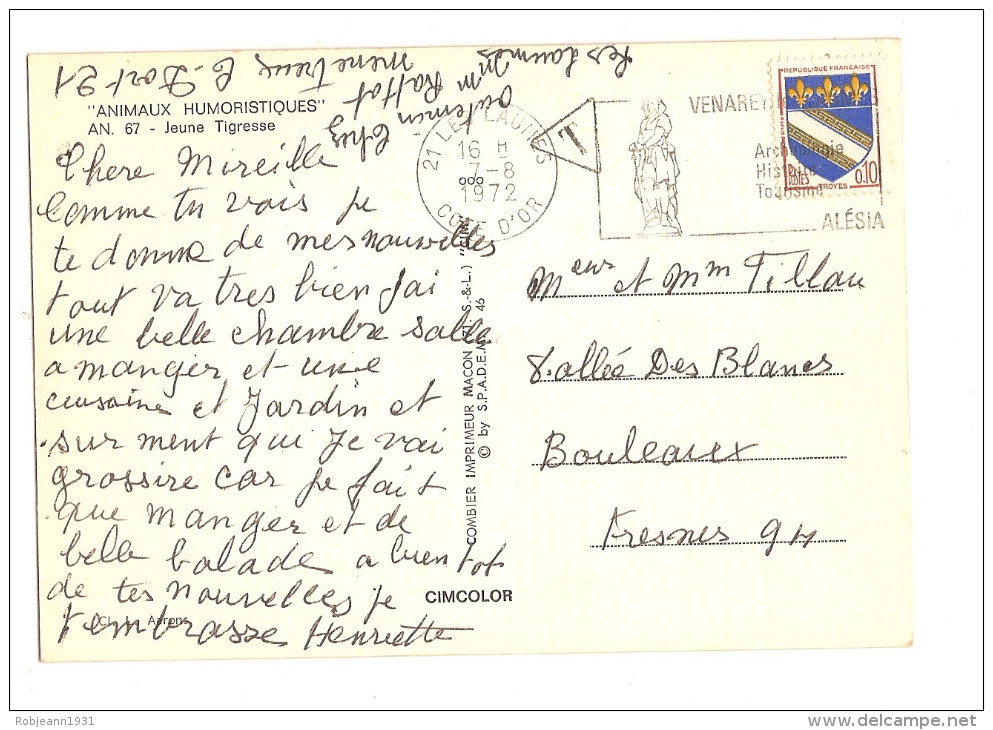 "ANIMAUX HUMORISTIQUES"
AN. 67 - Jeune Tigresse
Chere Mireille
Comme tu vois je
te donne de mes nouvelles
tout va tres bien J'ai
une belle chambre salle
a manger et une
cuisaine et Jardin et
surment que Je vai
grossire car je fait
que manger et de
belle balade a bientot
de tes nouvelles je
t'embrasse Henriette
Aarons
chez
Mm Rattat
menetreux le
21
les Laumes
21 LES LAUMES
16 H
7-8
1972
COTE D'OR
T
VENAREY
Archéologie
Histoire
Tourisme
ALÉSIA
REPUBLIQUE FRANÇAISE
POSTES
0,10
TROYES
COMBIER IMPRIMEUR MACON (71 S.-&-L.) "CIM"
© by S.P.A.D.E.M. 46
CIMCOLOR
Meur et Mm Tillau
8 allée Des Blancs
Bouleaux
Fresnes 94
Robjeann1931
www.delcampe.net